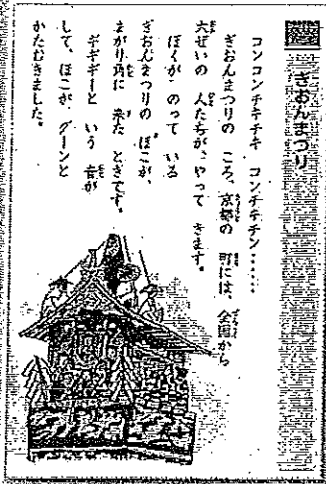 ぎおんまつり
コンコンチキチキ コンチキチン……
ぎおんまつりの ころ、京都の 町には、全国から
大ぜいの 人たちが、やって きます。
ぼくが のって いる
ぎおんまつりの ほこが、
まがり角に 来た ときです。
ギギギーと いう 音が
して、ほこが、グーンと
かたむきました。